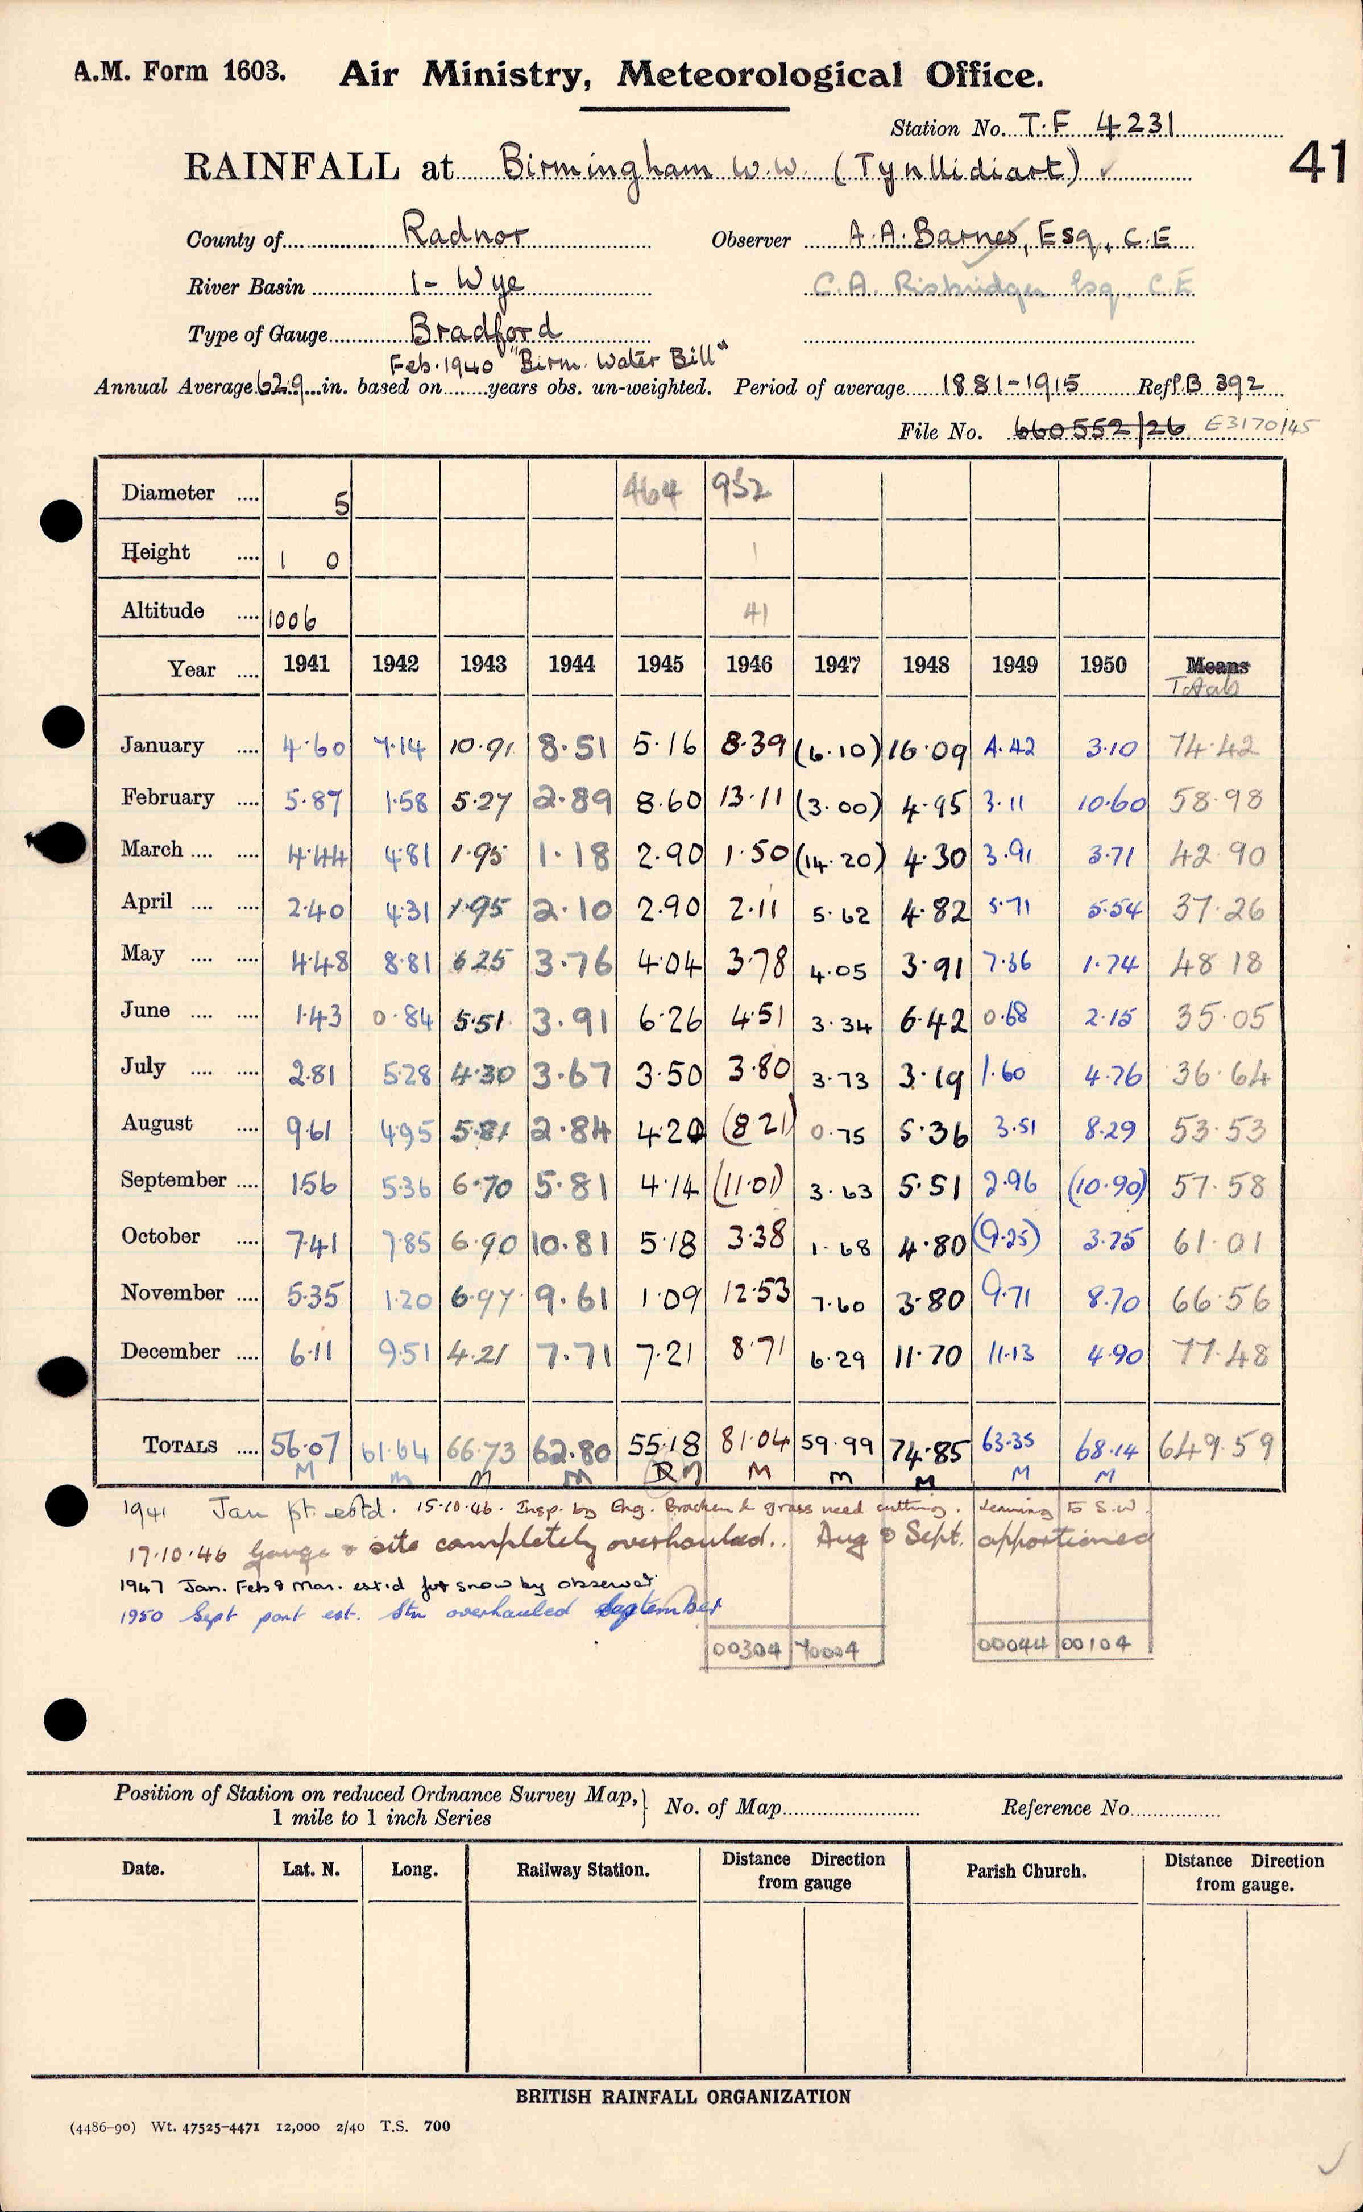 A.M. Form 1603. Air Ministry, Meteorological Office.
Station No. T.F 4231
RAINFALL at Birmingham W.W. (Tynllidiart) ✓
41
County of Radnor Observer A.A. Barnes, Esq., C.E
River Basin 1- Wye C.A. Risbridger Esq. C.E
Type of Gauge Bradford
Feb. 1940 "Birm. Water Bill"
Annual Average 62.9 in. based on years obs. un-weighted. Period of average 1881-1915 Ref P.B 392
File No. 660552/26 E3170/45
Diameter .... 5 464 952
Height .... 1 0 1
Altitude .... 1006 41
Year .... 1941 1942 1943 1944 1945 1946 1947 1948 1949 1950 Means
Totals
January .... 4.60 7.14 10.91 8.51 5.16 8.39 (6.10) 16.09 4.42 3.10 74.42
February .... 5.87 1.58 5.27 2.89 8.60 13.11 (3.00) 4.95 3.11 10.60 58.98
March .... .... 4.44 4.81 1.95 1.18 2.90 1.50 (14.20) 4.30 3.91 3.71 42.90
April .... .... 2.40 4.31 1.95 2.10 2.90 2.11 5.62 4.82 5.71 5.54 37.26
May .... .... 4.48 8.81 6.25 3.76 4.04 3.78 4.05 3.91 7.36 1.74 48.18
June .... .... 1.43 0.84 5.51 3.91 6.26 4.51 3.34 6.42 0.68 2.15 35.05
July .... .... 2.81 5.28 4.30 3.67 3.50 3.80 3.73 3.19 1.60 4.76 36.64
August .... 9.61 4.95 5.81 2.84 4.20 (8.21) 0.75 5.36 3.51 8.29 53.53
September .... 1.56 5.36 6.70 5.81 4.14 (11.01) 3.63 5.51 2.96 (10.90) 57.58
October .... 7.41 7.85 6.90 10.81 5.18 3.38 1.68 4.80 (9.25) 3.75 61.01
November .... 5.35 1.20 6.97 9.61 1.09 12.53 7.60 3.80 9.71 8.70 66.56
December .... 6.11 9.51 4.21 7.71 7.21 8.71 6.29 11.70 11.13 4.90 77.48
TOTALS .... 56.07 61.64 66.73 62.80 55.18 81.04 59.99 74.85 63.35 68.14 649.59
M M M M M M M M M M
1941 Jan pt. estd. 15.10.46. Insp. by Eng. Bracken & grass need cutting. Leaning to S.W.
17.10.46 Gauge & site completely overhauled.. Aug & Sept. apportioned
1947 Jan. Feb & Mar. est'd for snow by observer
1950 Sept part est. Stn overhauled September
00304 70004 00044 00104
Position of Station on reduced Ordnance Survey Map, 1 mile to 1 inch Series } No. of Map Reference No.
Date. Lat. N. Long. Railway Station. Distance Direction from gauge Parish Church. Distance Direction from gauge.
BRITISH RAINFALL ORGANIZATION
(4486-90) Wt. 47525-4471 12,000 2/40 T.S. 700
✓